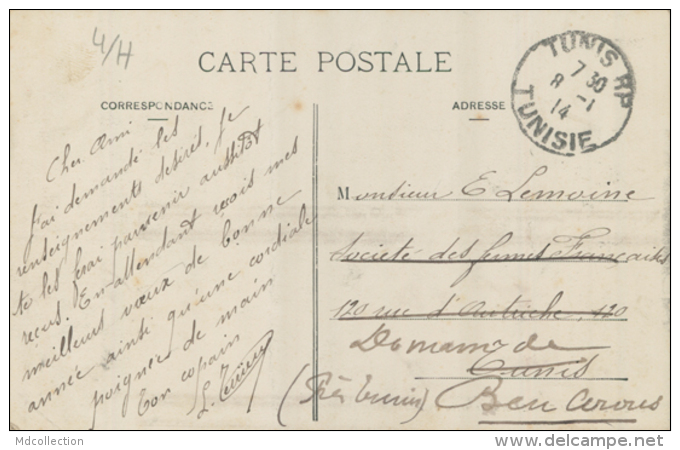 4/H
CARTE POSTALE
CORRESPONDANCE
ADRESSE
TUNIS RP
7 30
8 -1
14
TUNISIE
Cher Ami
J'ai demandé les
renseignements désirés, je
te les ferai parvenir aussitôt
reçus. En attendant reçois mes
meilleurs vœux de bonne
année ainsi qu'une cordiale
poignée de main
Ton copain
Monsieur E Lemoine
Société des fermes Françaises
120 rue d'Autriche, 120
Domaine de
Tunis
(Près Tunis) Ben Arous
Mdcollection
delcampe.net